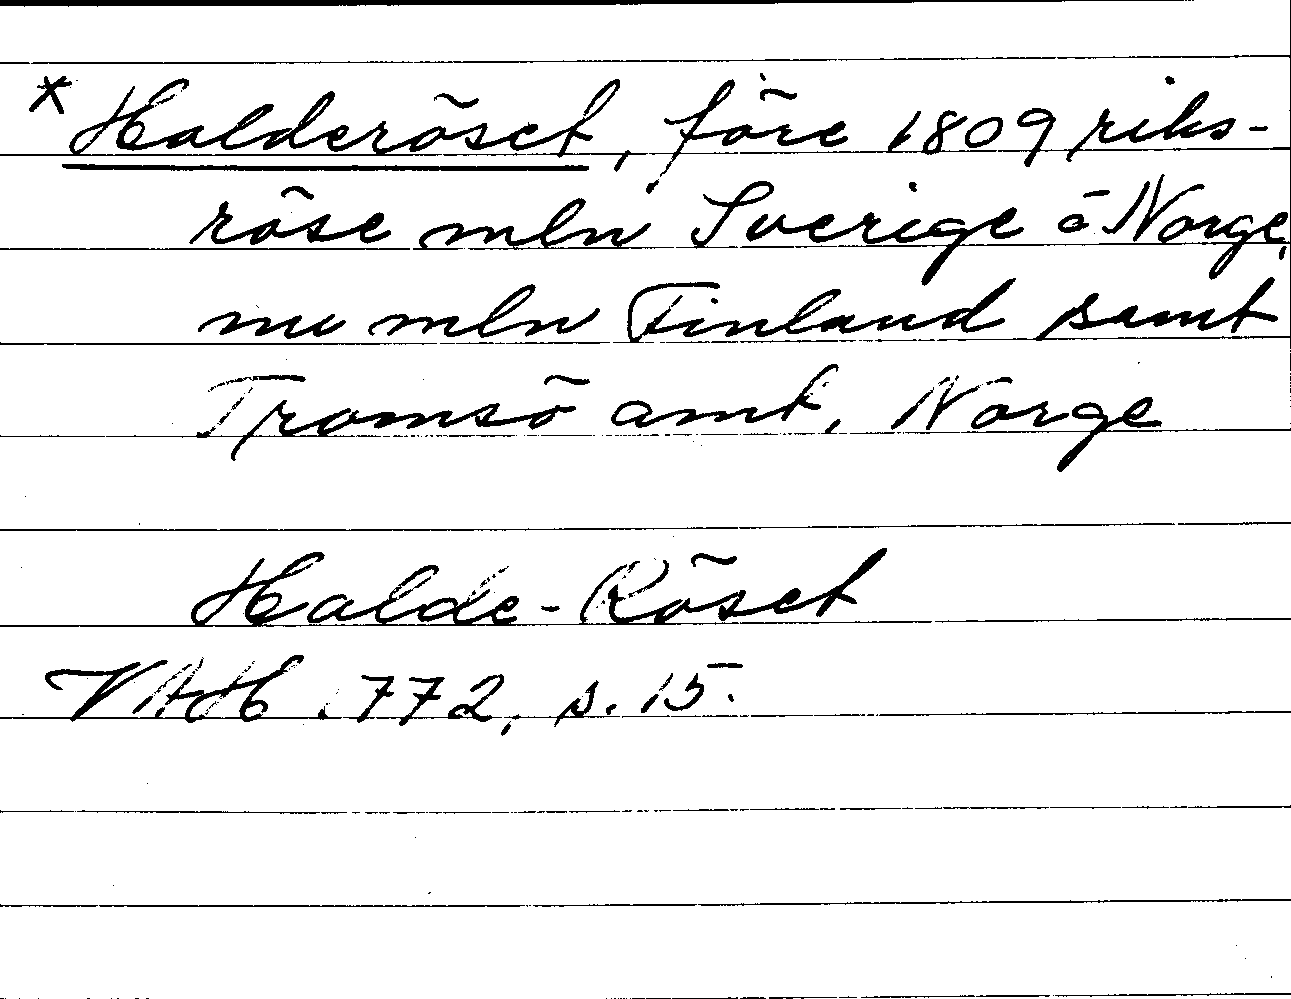 * Halderöset, före 1809 riks-
röse mln Sverige o Norge,
nu mln Finland samt
Tromsö amt, Norge
Halde-Röset
VAH .772, s. 15.